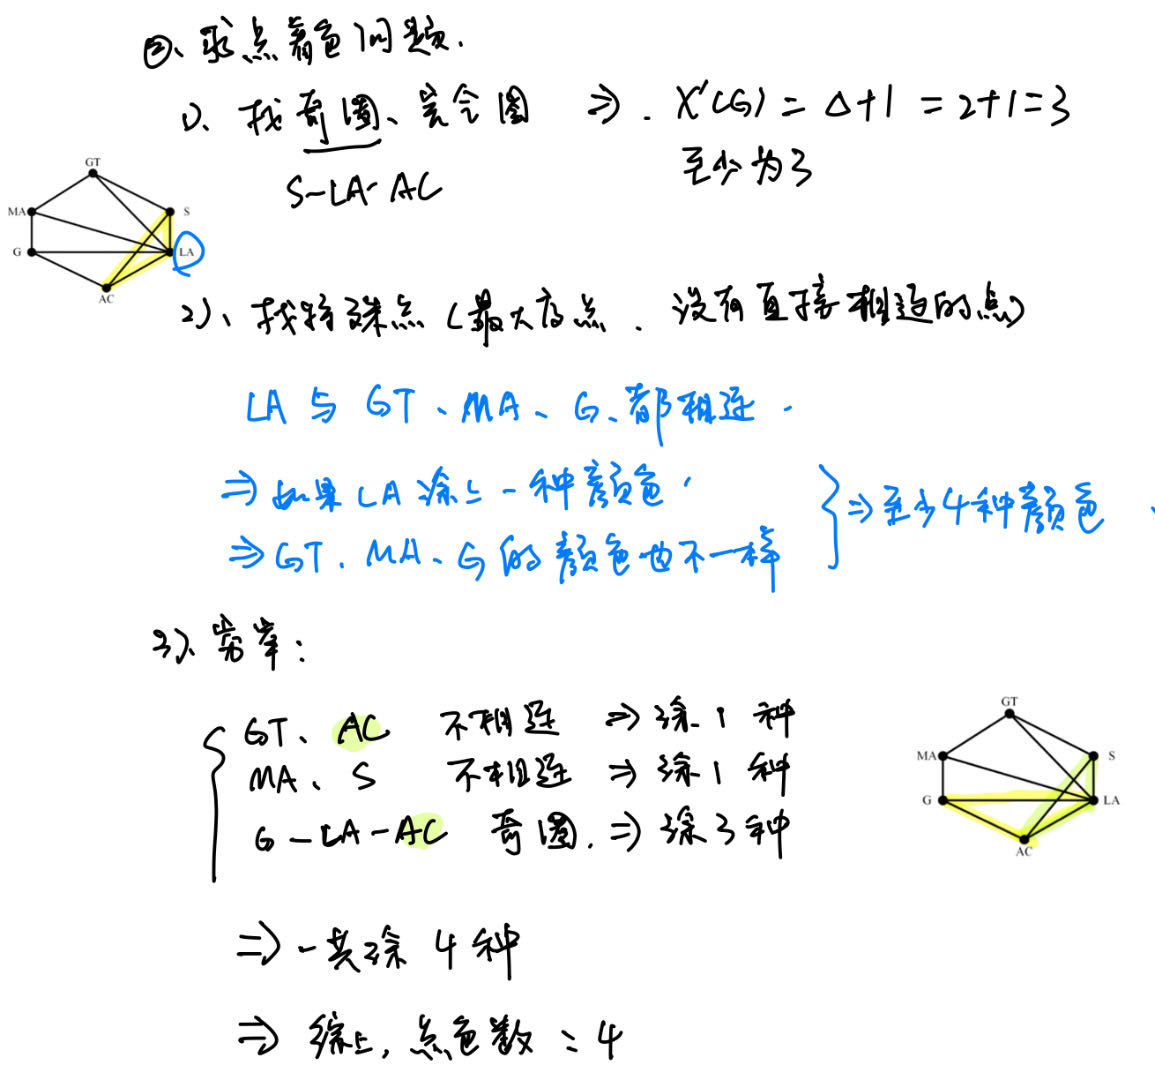 ②、求点着色问题.
1)、找奇圈、完全图 ⇒. X'(G) = Δ+1 = 2+1=3
至少为3
S-LA-AC
GT
MA
S
G
LA
AC
2)、找特殊点(最大度点、没有直接相连的点)
LA与GT、MA、G、都相连.
⇒如果LA涂上一种颜色,
⇒GT、MA、G的颜色也不一样
⇒至少4种颜色.
3)、穷举:
GT、AC 不相连 ⇒涂1种
MA、S 不相连 ⇒涂1种
G-LA-AC 奇圈.⇒涂3种
GT
MA
S
G
LA
AC
⇒一共涂4种
⇒综上,点色数=4